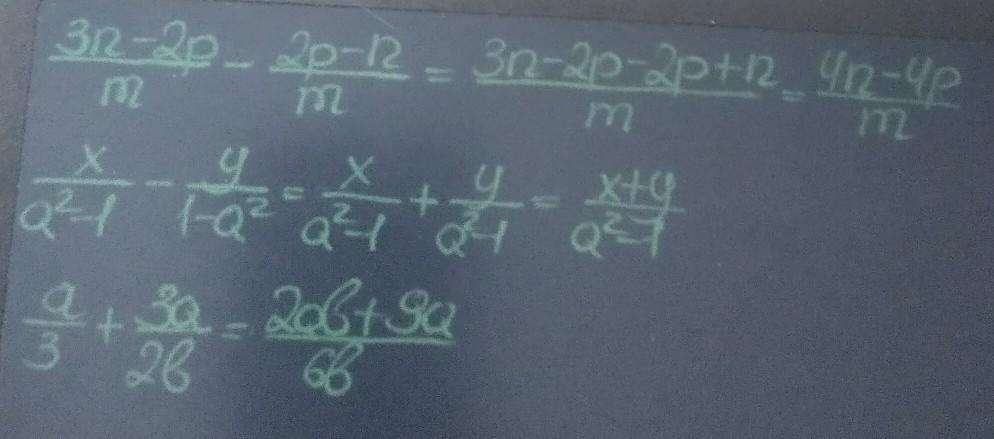 (3n-2p)/m - (2p-n)/m = (3n-2p-2p+n)/m = (4n-4p)/m
x/(a²-1) - y/(1-a²) = x/(a²-1) + y/(a²-1) = (x+y)/(a²-1)
a/3 + 3a/2b = (2ab+9a)/6b